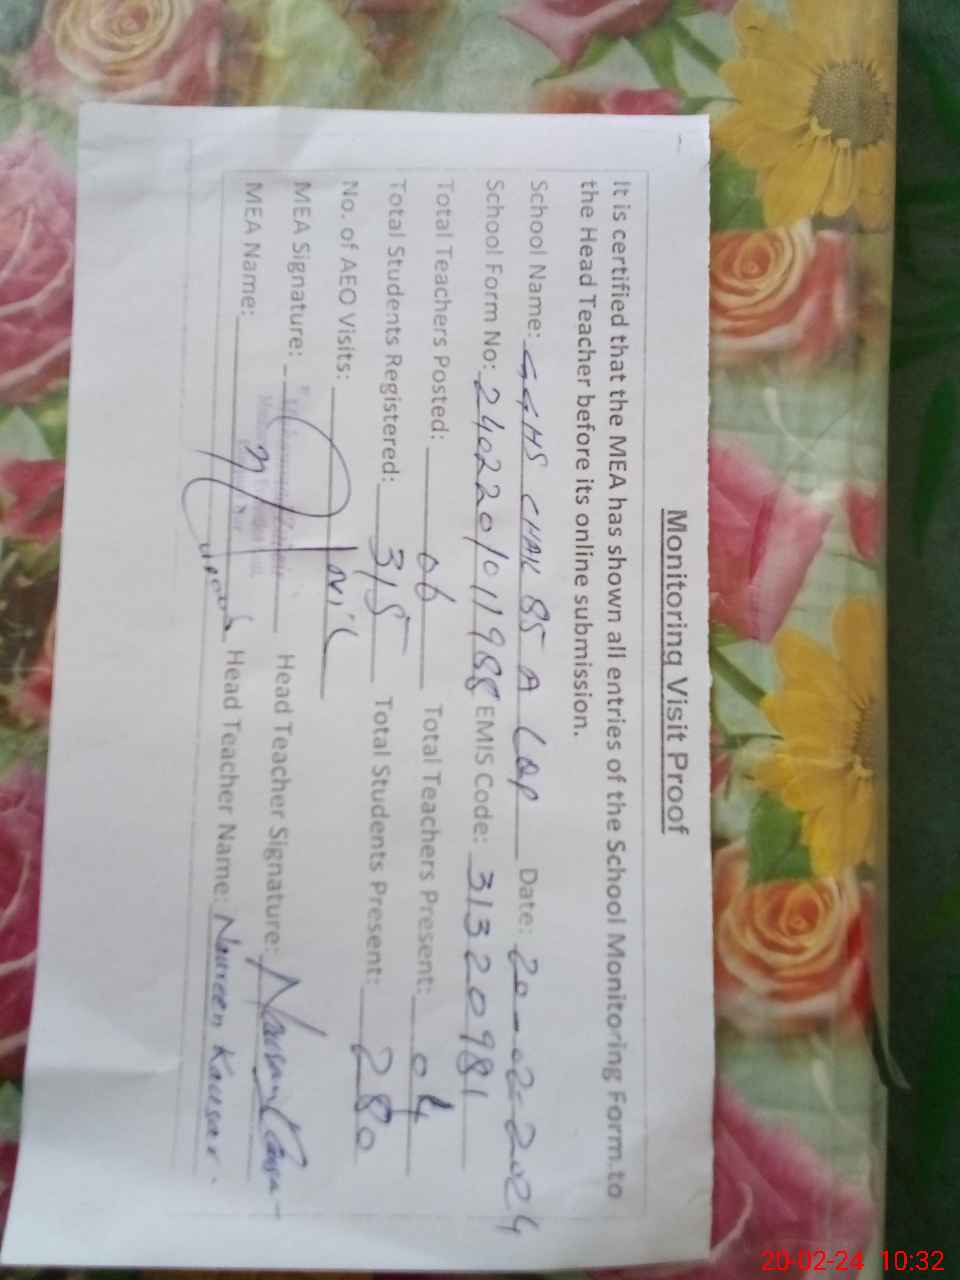 Monitoring Visit Proof
It is certified that the MEA has shown all entries of the School Monitoring Form to
the Head Teacher before its online submission.
School Name: GGHS CHAK 85 A LQP Date: 20-02-2024
School Form No: 2402201011988 EMIS Code: 31320981
Total Teachers Posted: 06 Total Teachers Present: 04
Total Students Registered: 315 Total Students Present: 280
No. of AEO Visits: Nil
MEA Signature: Head Teacher Signature:
MEA Name: Head Teacher Name: Nausreen Kausar.
20-02-24 10:32